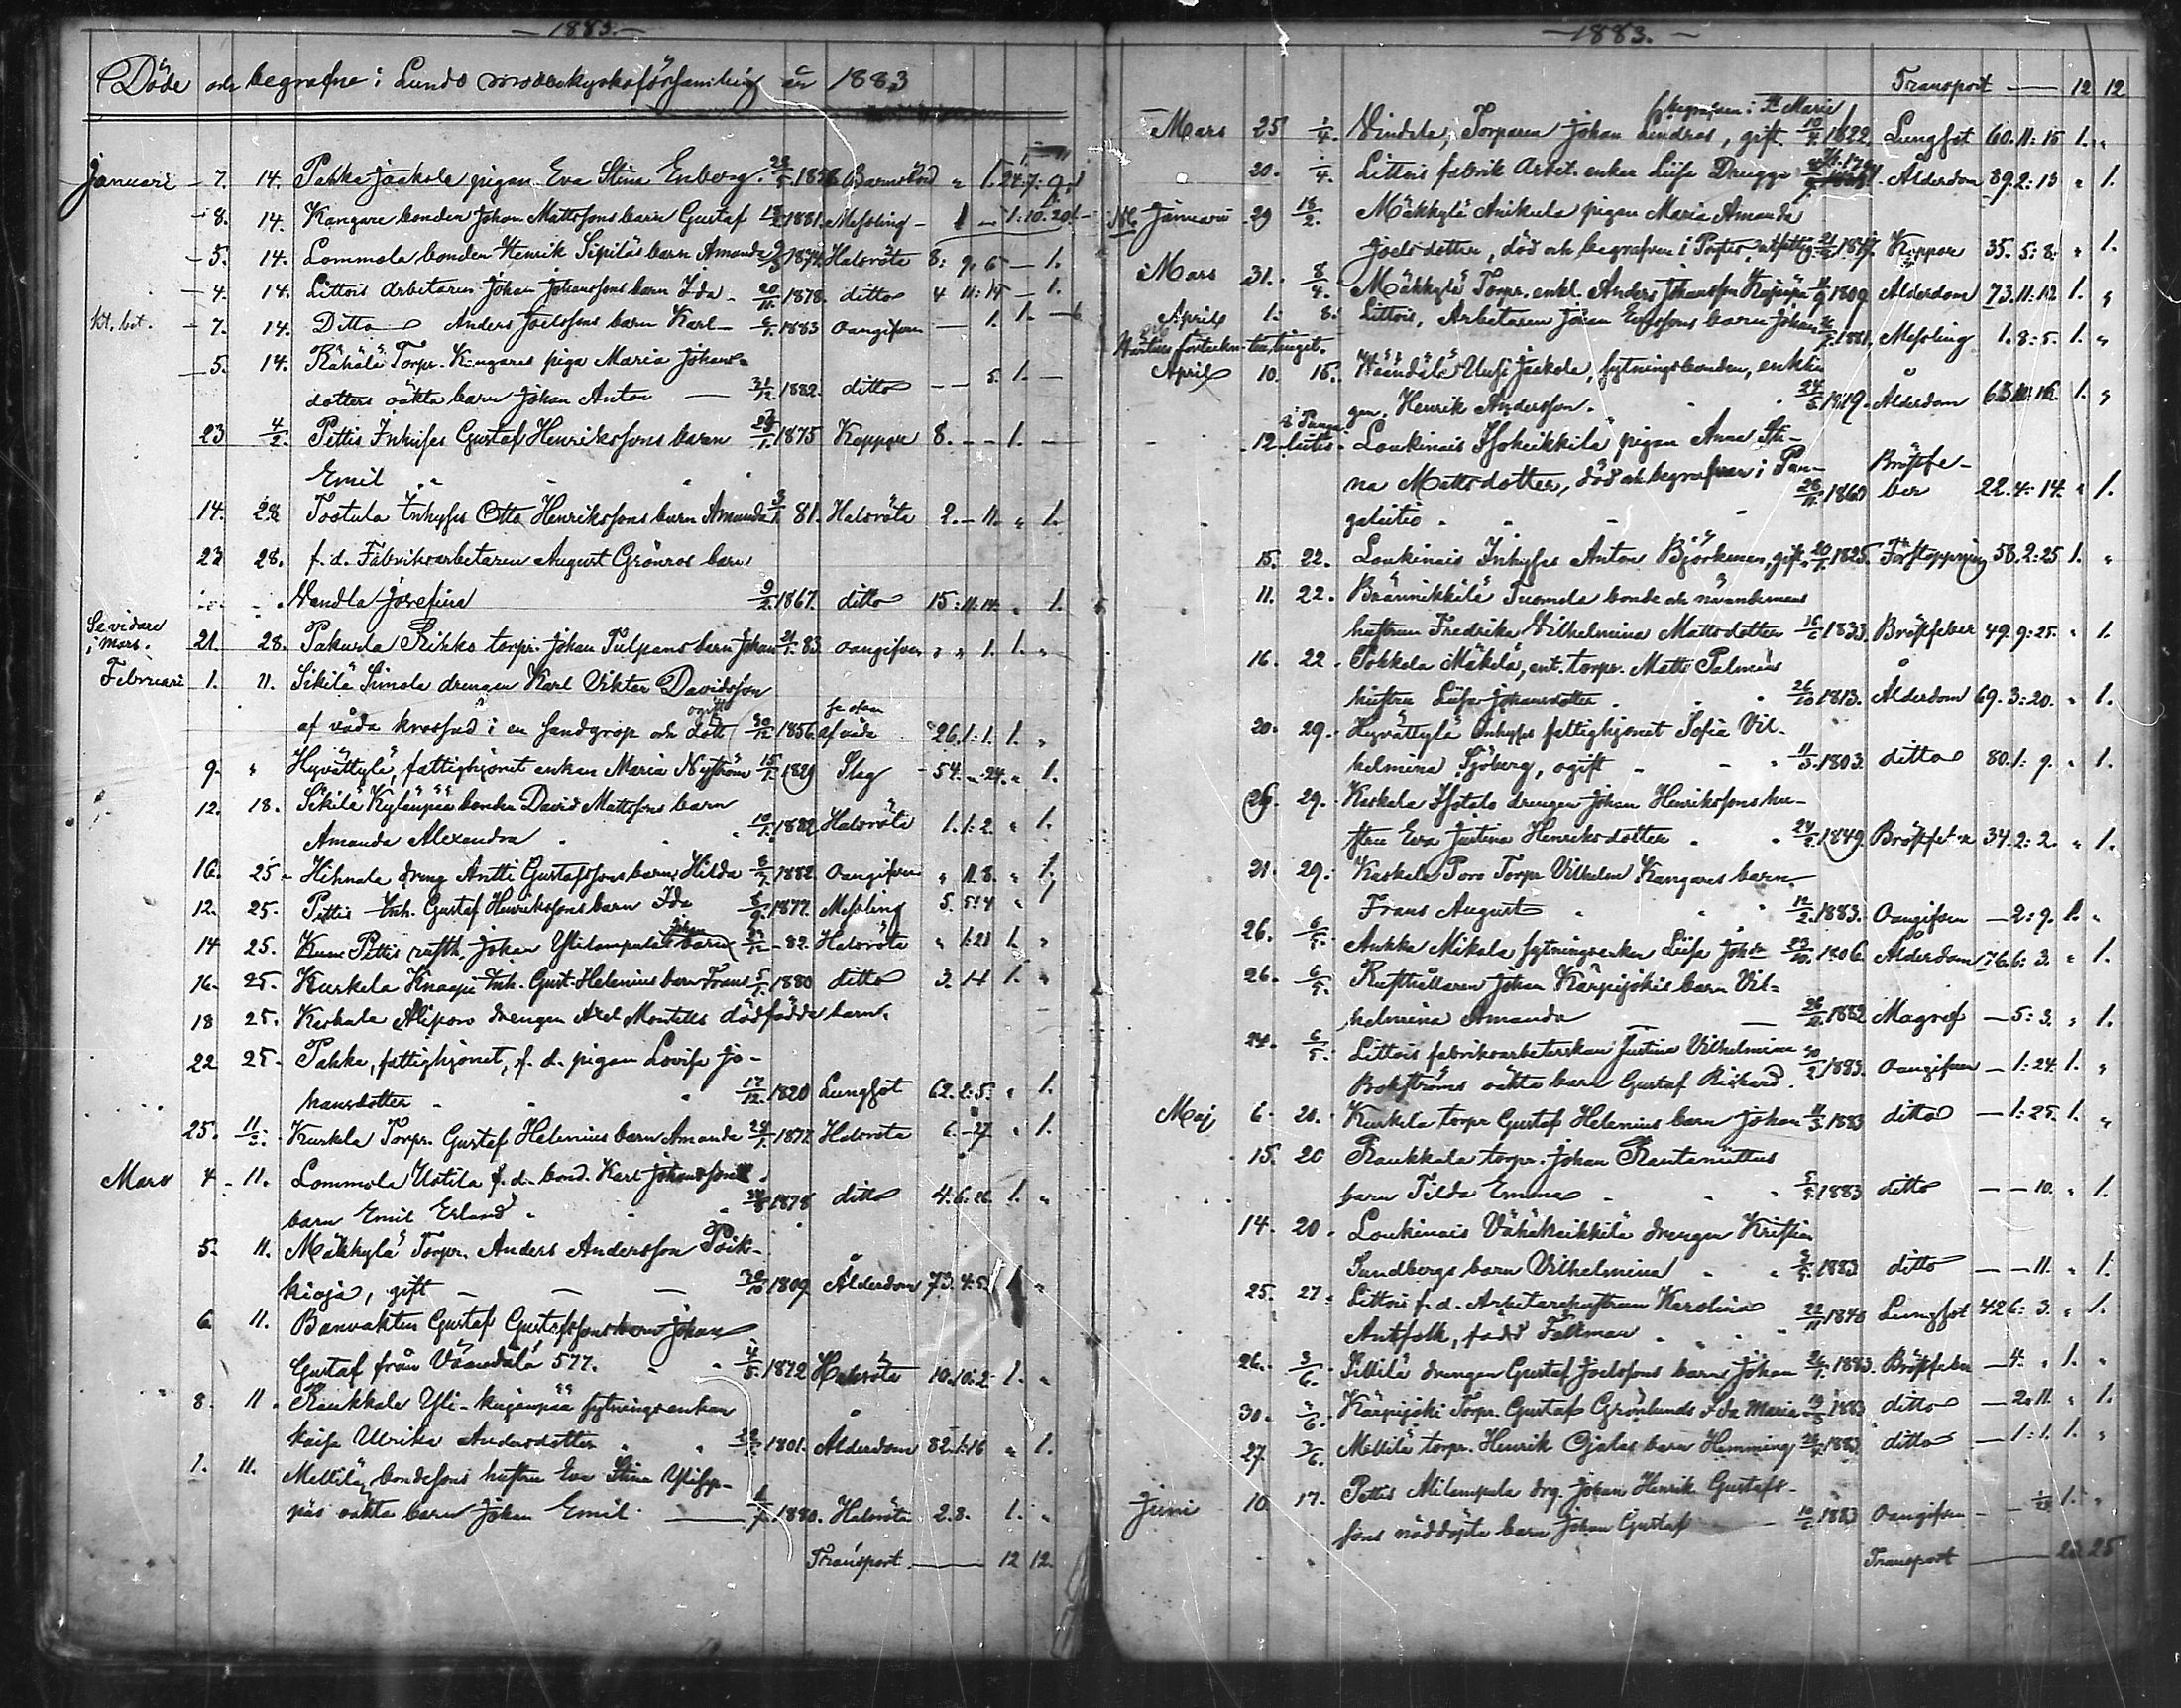 —1883.—
Döde och begrafne i Lundo moderkyrkoförsamling år 1883
Januari – 7. 14. Pahka Jaakola pigan Eva Stina Enberg. 1858 Barnsbörd
8. 14. Kangare bonden Johan Mattssons barn Gustaf 1881. Messling – 1 – 1:10.20
5. 14. Lommola bonden Henrik Sipiläs barn Amanda 1874. Halsröta 8: 9. 6 – 1.
4. 14. Littois Arbetaren Johan Johanssons barn Ida – 20/11. 1878. ditto 4 11:14 – 1.
7. 14. Ditto Anders Joelssons barn Karl – 1883 oangifven – 1. 1.
5. 14. Rähälä Torpr. Kangares piga Maria Johans-
dotters oäkta barn Johan Anton — 31/12. 1882. ditto – – 5. 1. –
23 4/2. Pettis Inhyses Gustaf Henrikssons barn 1875 Koppor 8. – – 1. –
Emil
14. 28 Tootula Inhyses Otto Henrikssons barn Amanda 81. Halsröta 2. – 11. „ 1.
23 28. f. d. Fabriksarbetaren August Grönros barn
Vendla Josefina 9/2. 1867. ditto 15:11:14. „ 1.
Se vidare
i Mars. 21. 28. Pakurla Rikko torpr. Johan Tulpans barn Johan 21/1. 83. oangifven „ „ 1. 1. „
Februari 1. 11. Sikilä Simola drengen Karl Viktor Davidsson
ogift
af våda krossad i en sandgrop och dött 30/12 1856. af våda 26. 1: 1. 1. „
9. „ Hyvättylä, fattighjonet enkan Maria Nyström 15/1. 1829 Slag 54. „ 24. „ 1.
12. 18. Sikilä Kylänpää bonden David Mattssons barn
Amanda Alexandra 10/1. 1882 Halsröta 1. 1: 2. „ 1.
16. 25. Hihnala dreng Antti Gustafssons barn Hilda 1882. Oangifven „ 11 8. „ 1.
12. 25. Pettis Inh. Gustaf Henrikssons barn Ida 8/9. 1877. Messling 5. 5:4 „ 1
14 25. Pettis rusth. Johan Ylilempuläs barn Johan – 82. Halsröta „ 1:21 1. „
16. 25. Kurkela Knaapi Inh. Gust. Helenius barn Frans 1880 ditto 3. 14 1. „
18 25. Keskala Alipovo drengen Axel Montells dödfödda barn.
22 25. Pakka, fattighjonet, f. d. pigan Lovisa Jo-
hansdotter 17/12. 1820 Lungsot 62. 2: 5. „ 1.
25. 11/3. Kurkela Torpr. Gustaf Helenius barn Amanda 28/1. 1877 Halsröta 6. – 27 „ 1.
Mars 4. 11. Lommola Uotila f. d. bond. Karl Johanssons
barn Emil Erland 1878 ditto 4:6:26. 1. „
5. 11. Mäkkylä Torpr. Anders Andersson Poik-
kioja, gift — — — 1809. Ålderdom 73. 4:5. 1 „
6 11. Banvakten Gustaf Gustafssons barn Johan
Gustaf från Väändälä 577. 4/5. 1872 Halsröta 10.10:2. 1. „
8. 11. Raukkala Yli-Kujanpää sytningsenkan
Kaisa Ulrika Andersdotter 1801. Ålderdom 82. 1:16 „ 1.
1. 11. Mellilä bondesons hustru Eva Stina
oäkta barn Johan Emil. — 1880. Halsröta 2. 8. 1. „
Transport — 12 12.
—1883.—
Transport — 12 12
begrafven i St Marie
Mars 25 1/4. Vindela, Torparen Johan Andras, gift 1822. Lungsot 60. 11: 15 1. „
20. 1/4. Littois fabrik Arbet. enkan Liisa Drugge Ålderdom 89. 2: 13 „ 1.
NB. Januari 29 18/2. Mäkkylä Anikula pigan Maria Amanda
Joelsdotter, död och begrafven i Pöytis, utfattig 1847. Koppor 35. 5: 8. „ 1.
Mars 31. 8/4. Mäkkylä Torpr. enkl. Anders Johansson 1809 Ålderdom 73. 11:12 1. „
April 1. 8. Littois, Arbetaren Johan barn Johan 1881. Messling 1. 8: 5. 1. „
April 10. 15. Wäändälä Uusi Jaakola, sytningsbonden, enklin-
gen, Henrik Andersson. 24/5. 1819. Ålderdom 63 10:16. 1. „
12 Loukinais Isoheikkilä pigan Anna Sti-
na Mattsdotter, död och begrafven i Pun- Bröstfe-
galaitio 28/11. 1860 ber 22. 4: 14. „ 1.
15. 22. Loukinais Inhyses Anton Björkman, gift 20/1. 1825. Förstoppning 58. 2: 25 1. „
11. 22. Bränikkälä Tuomola bonde och nämndemans
hustrun Fredrika Vilhelmina Mattsdotter 16/6 1833. Bröstfeber 49. 9: 25. „ 1.
16. 22. Pokkola Mäkilä, ent. torpr. Matts Palméns
hustru Liisa Johansdotter 26/10 1813. Ålderdom 69. 3: 20. „ 1.
20. 29. Hyvättylä Inhyses fattighjonet Sofia Vil-
helmina Sjöberg, ogift 11/3. 1803. ditto 80. 1: 9. „ 1.
26. 29. Keskala Isotalo drengen Johan Henrikssons hu-
stru Eva Justina Henriksdotter 24/2. 1849. Bröstfeber 34. 2: 2. „ 1.
21. 29. Keskala Poro Torpr Vilhelm Kangares barn
Frans August 12/2. 1883. Oangifven – 2: 9. 1. „
26. 6/5. Aukka Mikola sytningsenkan Liisa Joh 23/10. 1806. Ålderdom 76. 6: 3. „ 1.
26. 6/5. Rusthållaren Johan Kärpijokis barn Vil-
helmina Amanda — — 1882 Magref – 5: 3. „ 1.
24. 6/5. Littois fabriksarbeterskan Justina Vilhelmina
Bokströms oäkta barn Gustaf Rickard. 1883. Oangifven – 1: 24. 1. „
Maj 6. 20. Kurkela torpr Gustaf Helenius barn Johan 11/3. 1883 ditto – 1: 25. 1. „
15. 20 Raukkala torpr. Johan Rautanuttus
barn Tilda Emma 5/5. 1883 ditto – – 10. „ 1.
14. 20. Loukinais Vähäheikkilä drengen Kristian
Sundbergs barn Vilhelmina 3/5. 1883 ditto – – 11. „ 1.
25. 27. Littois f. d. Arbetarehustrun Karolina
Antfolk, född Fällman 22/11 1840 Lungsot 42 6: 3. „ 1.
26. 3/6. Sillilä drengen Gustaf Joelssons barn Johan 26/1. 1883. Bröstfeber – 4. „ 1. „
30. 3/6. Kärpijoki Torpr. Gustaf Grönlunds Ida Maria 19/3 1883 ditto – 2. 11. „ 1.
27. 3/6. Mellilä torpr. Henrik Ojalas barn Hemming 1883. ditto – 1: 1. 1. „
Juni 10. 17. Pettis Alilempula drg. Johan Henrik Gustafs-
sons nöddöpta barn Johan Gustaf — 10/6. 1883 Oangifven – 1.
Transport — 25